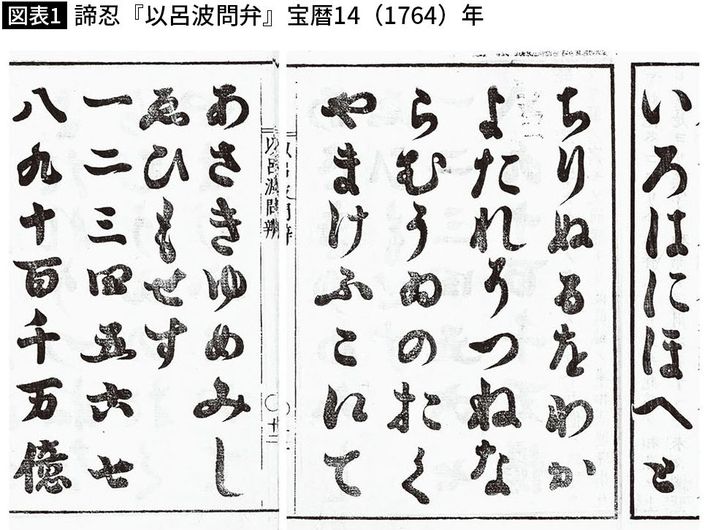 図表1 諦忍『以呂波問弁』宝暦14（1764）年
いろはにほへと
ちりぬるをわか
よたれそつねな
らむうゐのおく
やまけふこえて
以呂波問辨
あさきゆめみし
ゑひもせす
一二三四五六七
八九十百千万億